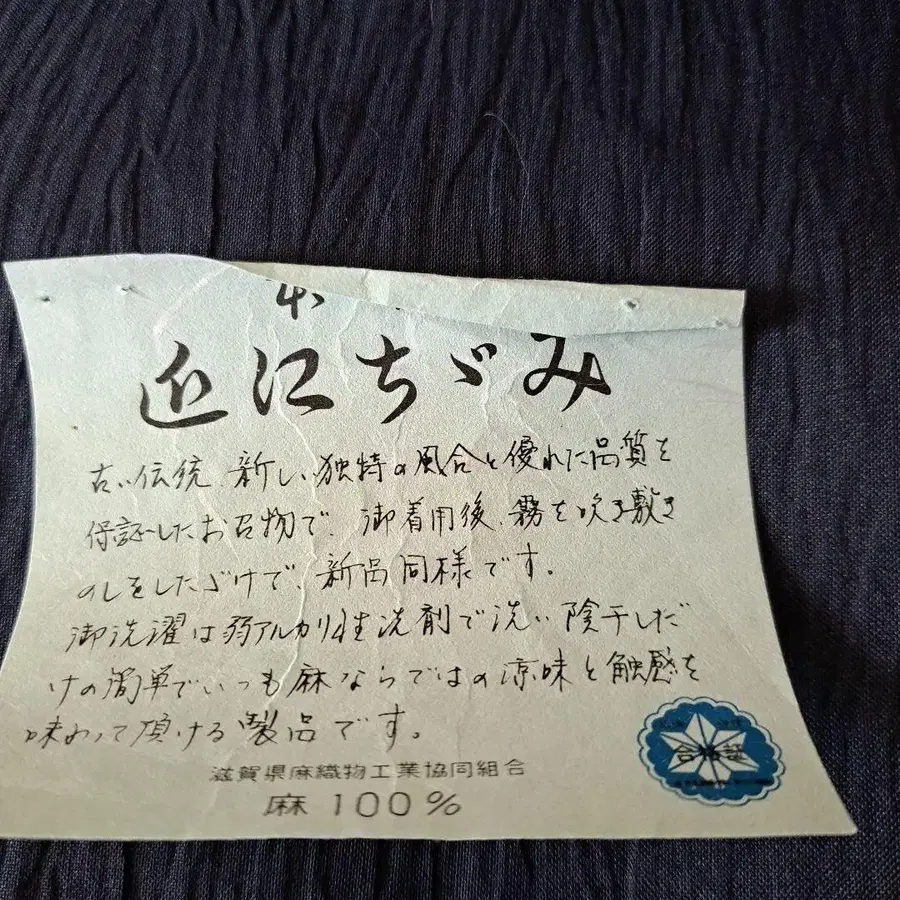 本
近江ちゞみ
古い伝統、新しい独特の風合と優れた品質を
保証したお召物で、御着用後、霧を吹き敷き
のしをしたゞけで、新品同様です。
御洗濯は弱アルカリ性洗剤で洗い陰干しだ
けの簡単でいつも麻ならではの涼味と触感を
味わって頂ける製品です。
滋賀県麻織物工業協同組合
麻100%
合格証